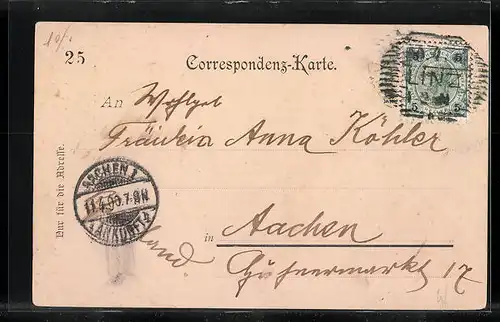 10/
25
Correspondenz-Karte.
LINZ
5 5
An Wohlgeb
Fräulein Anna Köhler
Nur für die Adresse.
AACHEN 1
11.4.99.7-8N
ANKUNFT
in Aachen
Hühnermarkt 17